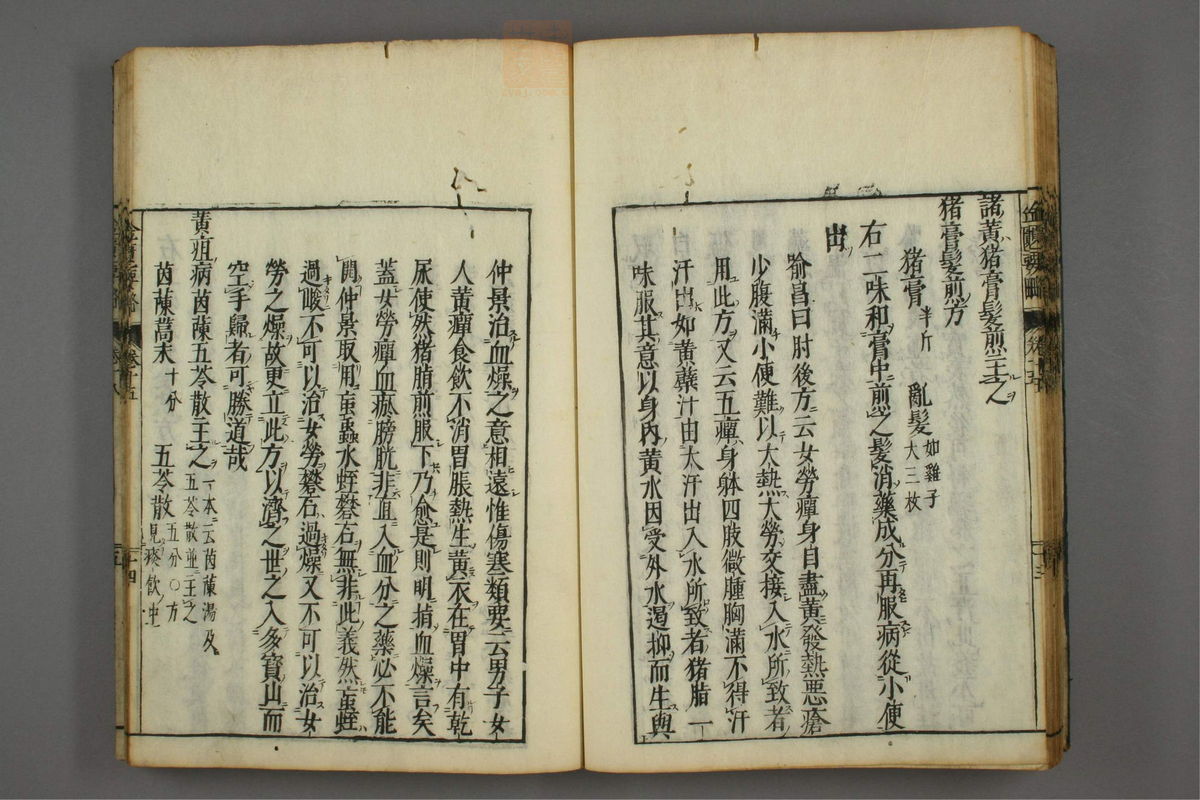 諸黄猪膏髮煎主之
猪膏髮煎方
猪膏半斤 亂髮如雞子大三枚
右二味和膏中煎之髮消藥成分再服病從小便
出
喻昌曰肘後方云女勞癉身目盡黄發熱惡瘡
少腹滿小便難以大熱大勞交接入水所致者
用此方又云五癉身躰四肢微腫胸滿不得汗
汗出如黄蘗汁由大汗出入水所致者猪脂一
味服其意以身內黄水因受外水遏抑而生與
仲景治血燥之意相遠惟傷寒類要云男子女
人黄癉食飲不消胃脹熱生黄衣在胃中有乾
尿使然猪脂煎服下乃愈是則明指血燥言矣
蓋女勞癉血瘀膀胱非直入血分之藥必不能
開仲景取用䖟蟲水蛭礬石無非此義然䖟蛭
過峻不可以治女勞礬石過燥又不可以治女
勞之燥故更立此方以濟之世之入多寶山而
空手歸者可勝道哉
黄疸病茵蔯五苓散主之一本云茵蔯湯及五苓散並主之
茵蔯蒿末十分 五苓散五分○方見痰飲中